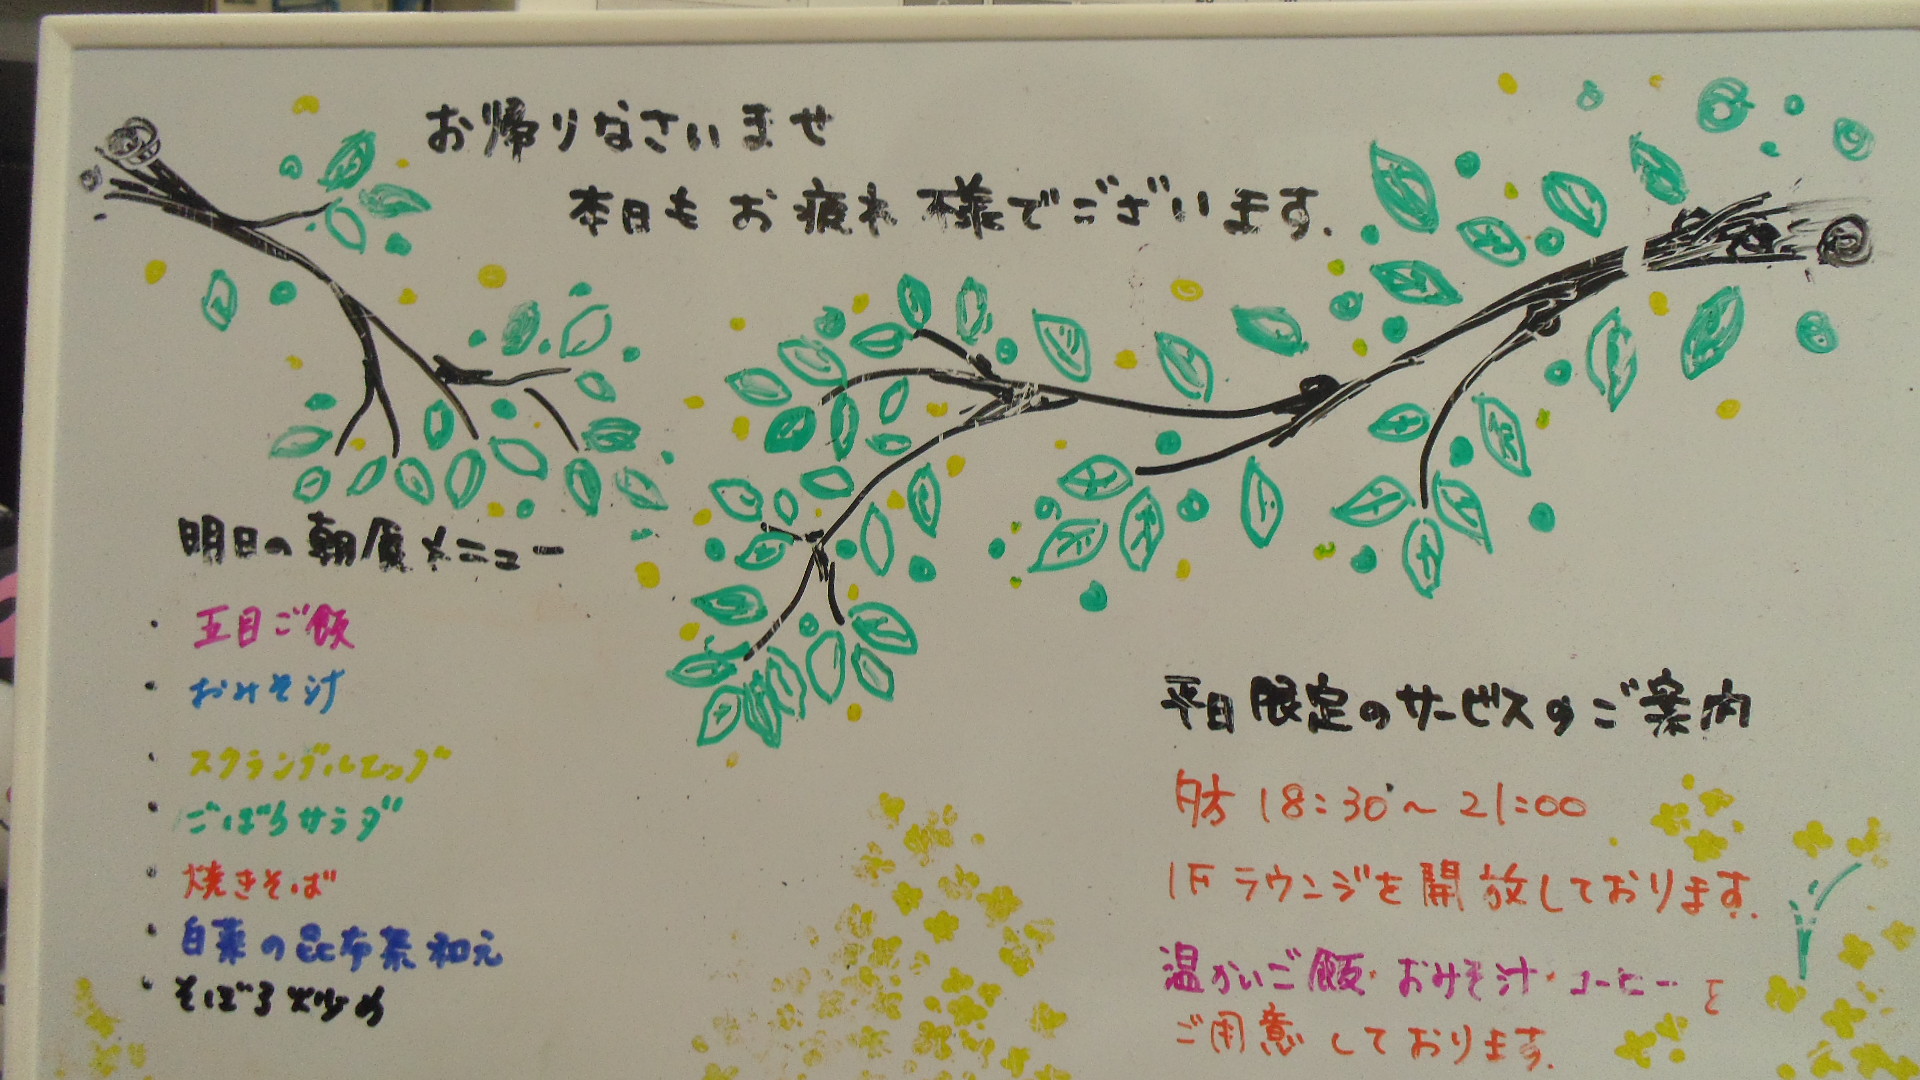 お帰りなさいませ
本日もお疲れ様でございます.
明日の朝食メニュー
・五目ご飯
・おみそ汁
・スクランブルエッグ
・ごぼうサラダ
・焼きそば
・白菜の昆布茶和え
・そぼろ炒め
平日限定のサービスのご案内
夕方 18:30~21:00
1Fラウンジを開放しております.
温かいご飯・おみそ汁・コーヒーを
ご用意しております.